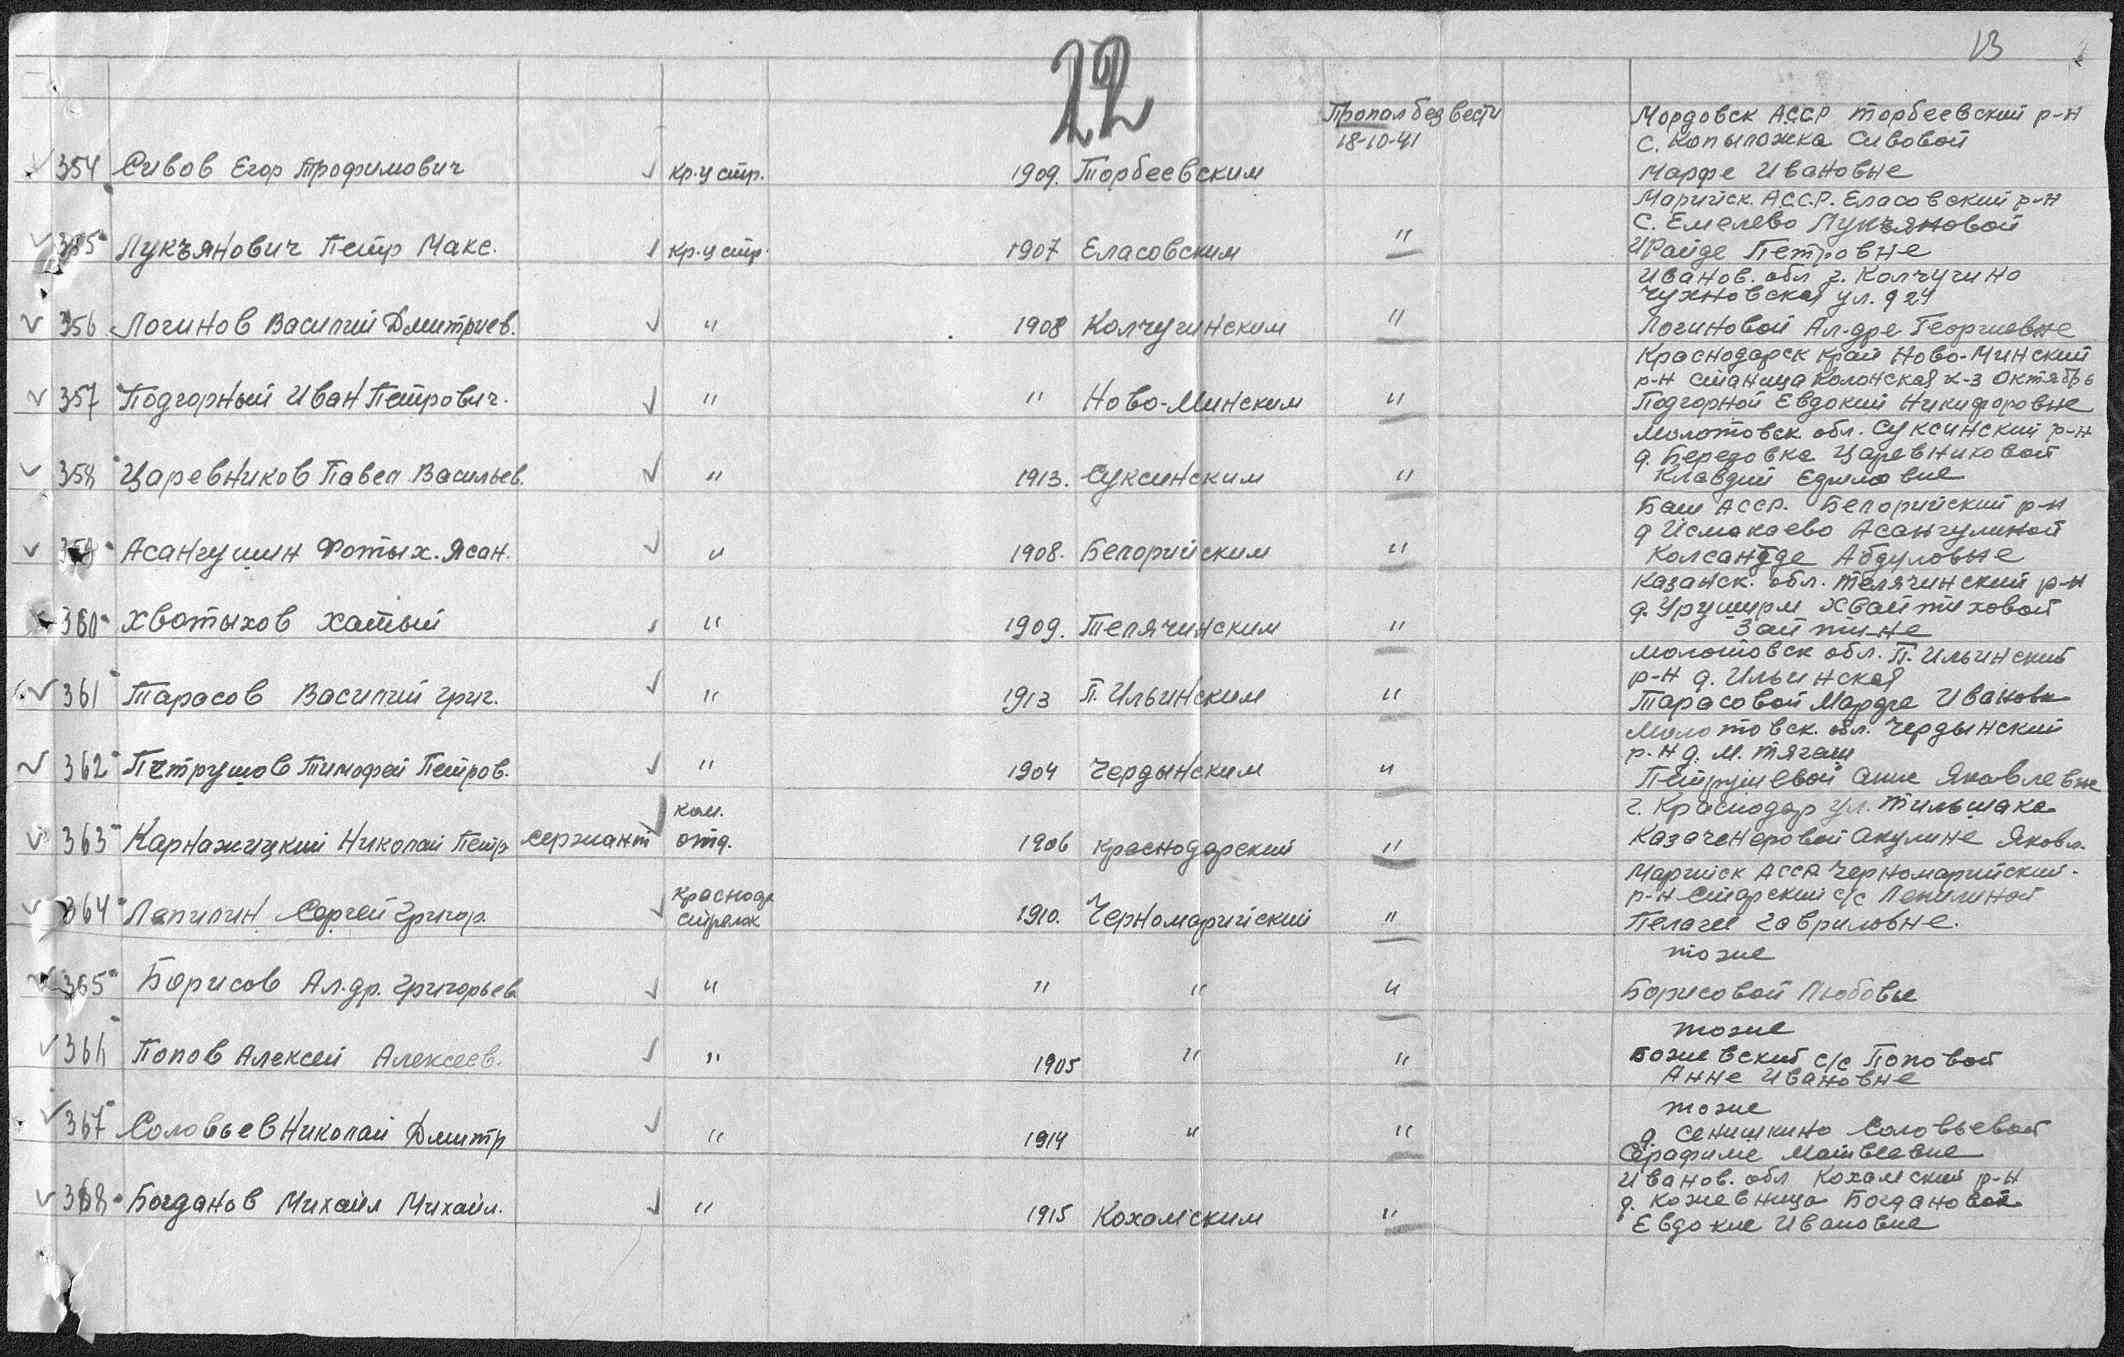 22
13
Пропал без вести
18-10-41
Мордовск АССР Торбеевский р-н
с. Копыложка Сивовой
Марфе Ивановне
354 Сивов Егор Трофимович кр-ц стр. 1909. Торбеевским
Марийск. АССР. Еласовский р-н
с. Емелево Лукъяновой
Ираиде Петровне
355 Лукъянович Петр Макс. кр-ц стр. 1907 Еласовским "
Иванов. обл г. Колчугино
Чухновская ул. д 24
Логиновой Ал-дре Георгиевне
356 Логинов Василий Дмитриев. " 1908 Колчугинским "
Краснодарск край Ново-Минский
р-н станица Колонская к-з Октябрь
Подгорной Евдокии Никифоровне
357 Подгорный Иван Петрович. " " Ново-Минским "
Молотовск обл. Суксинский р-н
д. Бередовка Царевниковой
Клавдии
358 Царевников Павел Васильев. " 1913. Суксинским "
Баш АССР. Белорийский р-н
д Исмакаево Асангулиной
Абдуловне
359 Асангушин Фотых. Ясан. " 1908. Белорийским "
Казанск. обл. Телячинский р-н
д.
360 Хвотыхов Хатый " 1909. Телячинским "
Молотовск обл. П. Ильинский
р-н д. Ильинская
Тарасовой Марфе Иванов
361 Тарасов Василий Григ. " 1913 П. Ильинским "
Молотовск. обл. Чердынский
р-н д. М. Тягаш
Петрушевой Анне Яковлевне
362 Петрушов Тимофей Петров. " 1904 Чердынским "
г. Краснодар ул.
Акулине Яковл.
ком.
363 Карнажицкий Николай Петр сержант отд. 1906 Краснодарский "
Марийск АССР Черномарийский
р-н Старский с/с Лепилиной
Пелагеи Гавриловне.
Красноар
364 Лапилин Сергей Григор. стрелок 1910. Черномарийский "
тоже
365 Борисов Ал-др. Григорьев " " " " Борисовой Любовье
тоже
Божевский с/с Поповой
Анне Ивановне
366 Попов Алексей Алексеев. " 1905 " "
тоже
д. Сенишкино Соловьевой
Серафиме Матвеевне
367 Соловьев Николай Дмитр " 1914 " "
Иванов. обл Кохомский р-н
д. Кожевница Богдановой
Евдокие Ивановне
368 Богданов Михаил Михайл. " 1915 Кохомским "